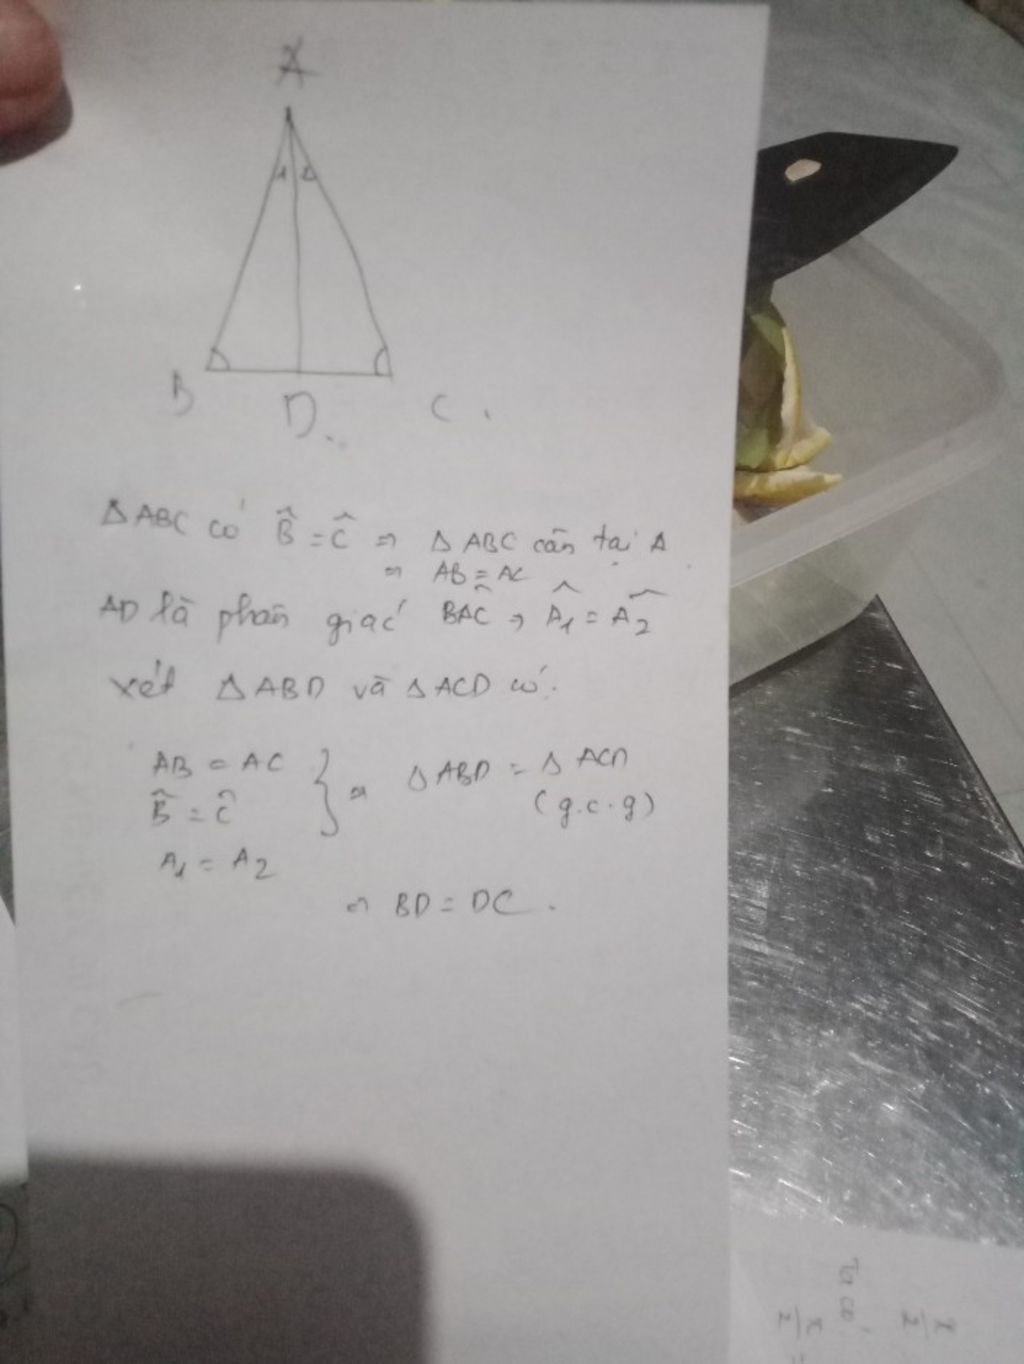 A
1 2
B D C
ΔABC có B̂ = Ĉ ⇒ ΔABC cân tại A
⇒ AB = AC
AD là phân giác BAC ⇒ Â1 = Â2
xét ΔABD và ΔACD có:
AB = AC
B̂ = Ĉ
A1 = A2
⇒ ΔABD = ΔACD
(g.c.g)
⇒ BD = DC.
Ta có